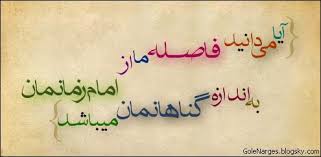 {آیا
می‌دانید فاصله ما از
امام زمانمان
به اندازه گناهانمان میباشد}
GoleNarges.blogsky.com